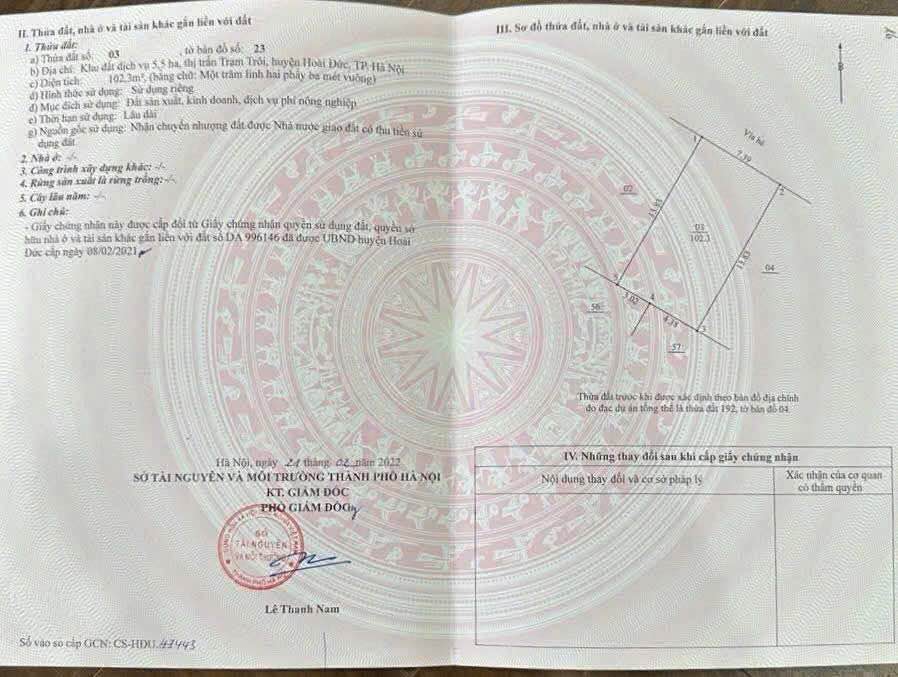 II. Thửa đất, nhà ở và tài sản khác gắn liền với đất
1. Thửa đất:
a) Thửa đất số: 03 , tờ bản đồ số: 23
b) Địa chỉ: Khu đất dịch vụ 5,5 ha, thị trấn Trạm Trôi, huyện Hoài Đức, TP. Hà Nội
c) Diện tích: 102.3m², (bằng chữ: Một trăm linh hai phẩy ba mét vuông)
d) Hình thức sử dụng: Sử dụng riêng
đ) Mục đích sử dụng: Đất sản xuất, kinh doanh, dịch vụ phi nông nghiệp
e) Thời hạn sử dụng: Lâu dài
g) Nguồn gốc sử dụng: Nhận chuyển nhượng đất được Nhà nước giao đất có thu tiền sử
dụng đất
2. Nhà ở: -/-
3. Công trình xây dựng khác: -/-
4. Rừng sản xuất là rừng trồng: -/-
5. Cây lâu năm: -/-
6. Ghi chú:
- Giấy chứng nhận này được cấp đổi từ Giấy chứng nhận quyền sử dụng đất, quyền sở
hữu nhà ở và tài sản khác gắn liền với đất số DA 996146 đã được UBND huyện Hoài
Đức cấp ngày 08/02/2021
Hà Nội, ngày 21 tháng 02 năm 2022
SỞ TÀI NGUYÊN VÀ MÔI TRƯỜNG THÀNH PHỐ HÀ NỘI
KT. GIÁM ĐỐC
PHÓ GIÁM ĐỐC
SỞ
TÀI NGUYÊN
VÀ MÔI TRƯỜNG
THÀNH PHỐ HÀ NỘI
Lê Thanh Nam
Số vào sổ cấp GCN: CS-HDU.47443
III. Sơ đồ thửa đất, nhà ở và tài sản khác gắn liền với đất
B
Vỉa hè
1
7.39
2
02
03
102.3
13.83
04
5
3.02
4
4.38
3
56
57
Thửa đất trước khi được xác định theo bản đồ địa chính
đo đạc dự án tổng thể là thửa đất 192, tờ bản đồ 04.
IV. Những thay đổi sau khi cấp giấy chứng nhận
Nội dung thay đổi và cơ sở pháp lý
Xác nhận của cơ quan
có thẩm quyền